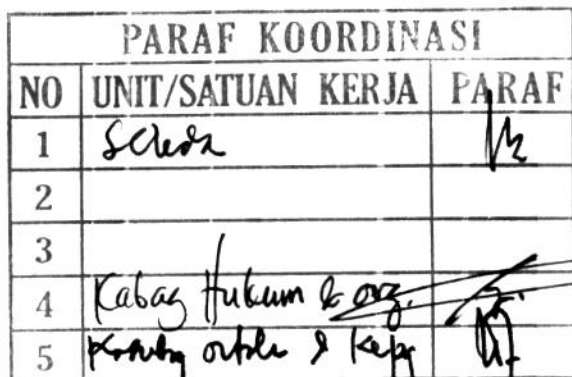 PARAF KOORDINASI
NO UNIT/SATUAN KERJA PARAF
1 Sekda
2
3
4 Kabag Hukum & org.
5 & Kepg